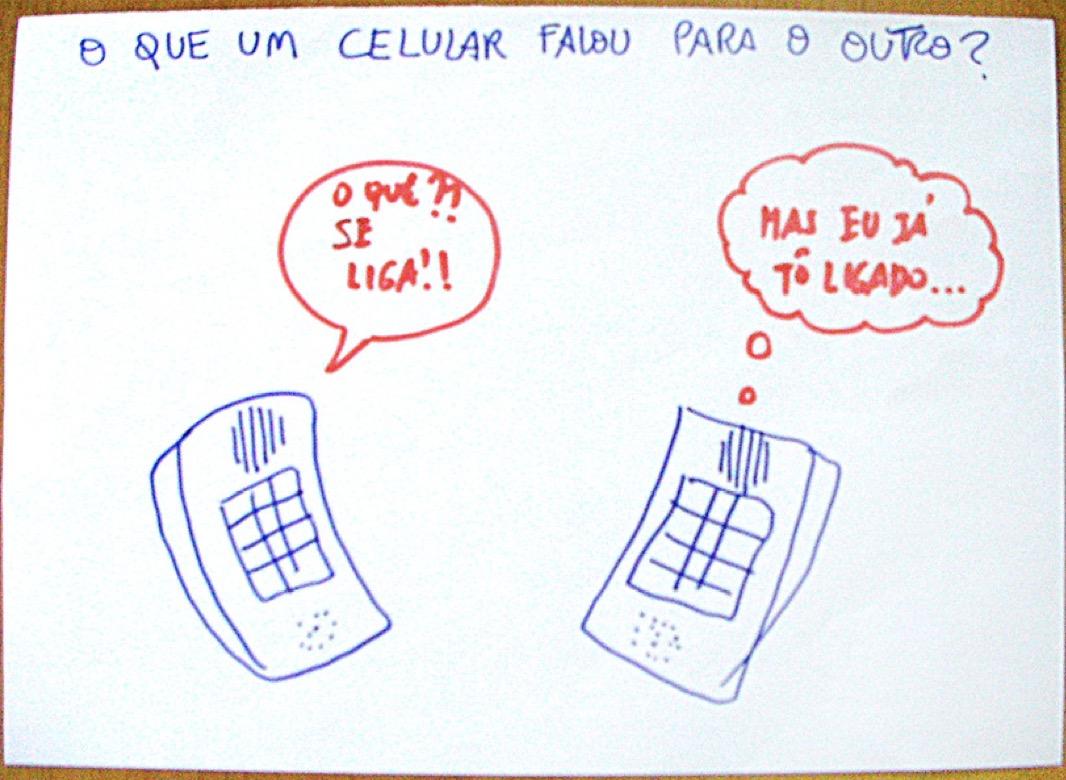 O QUE UM CELULAR FALOU PARA O OUTRO?
O QUE?!
SE
LIGA!!
MAS EU JÁ
TÔ LIGADO...